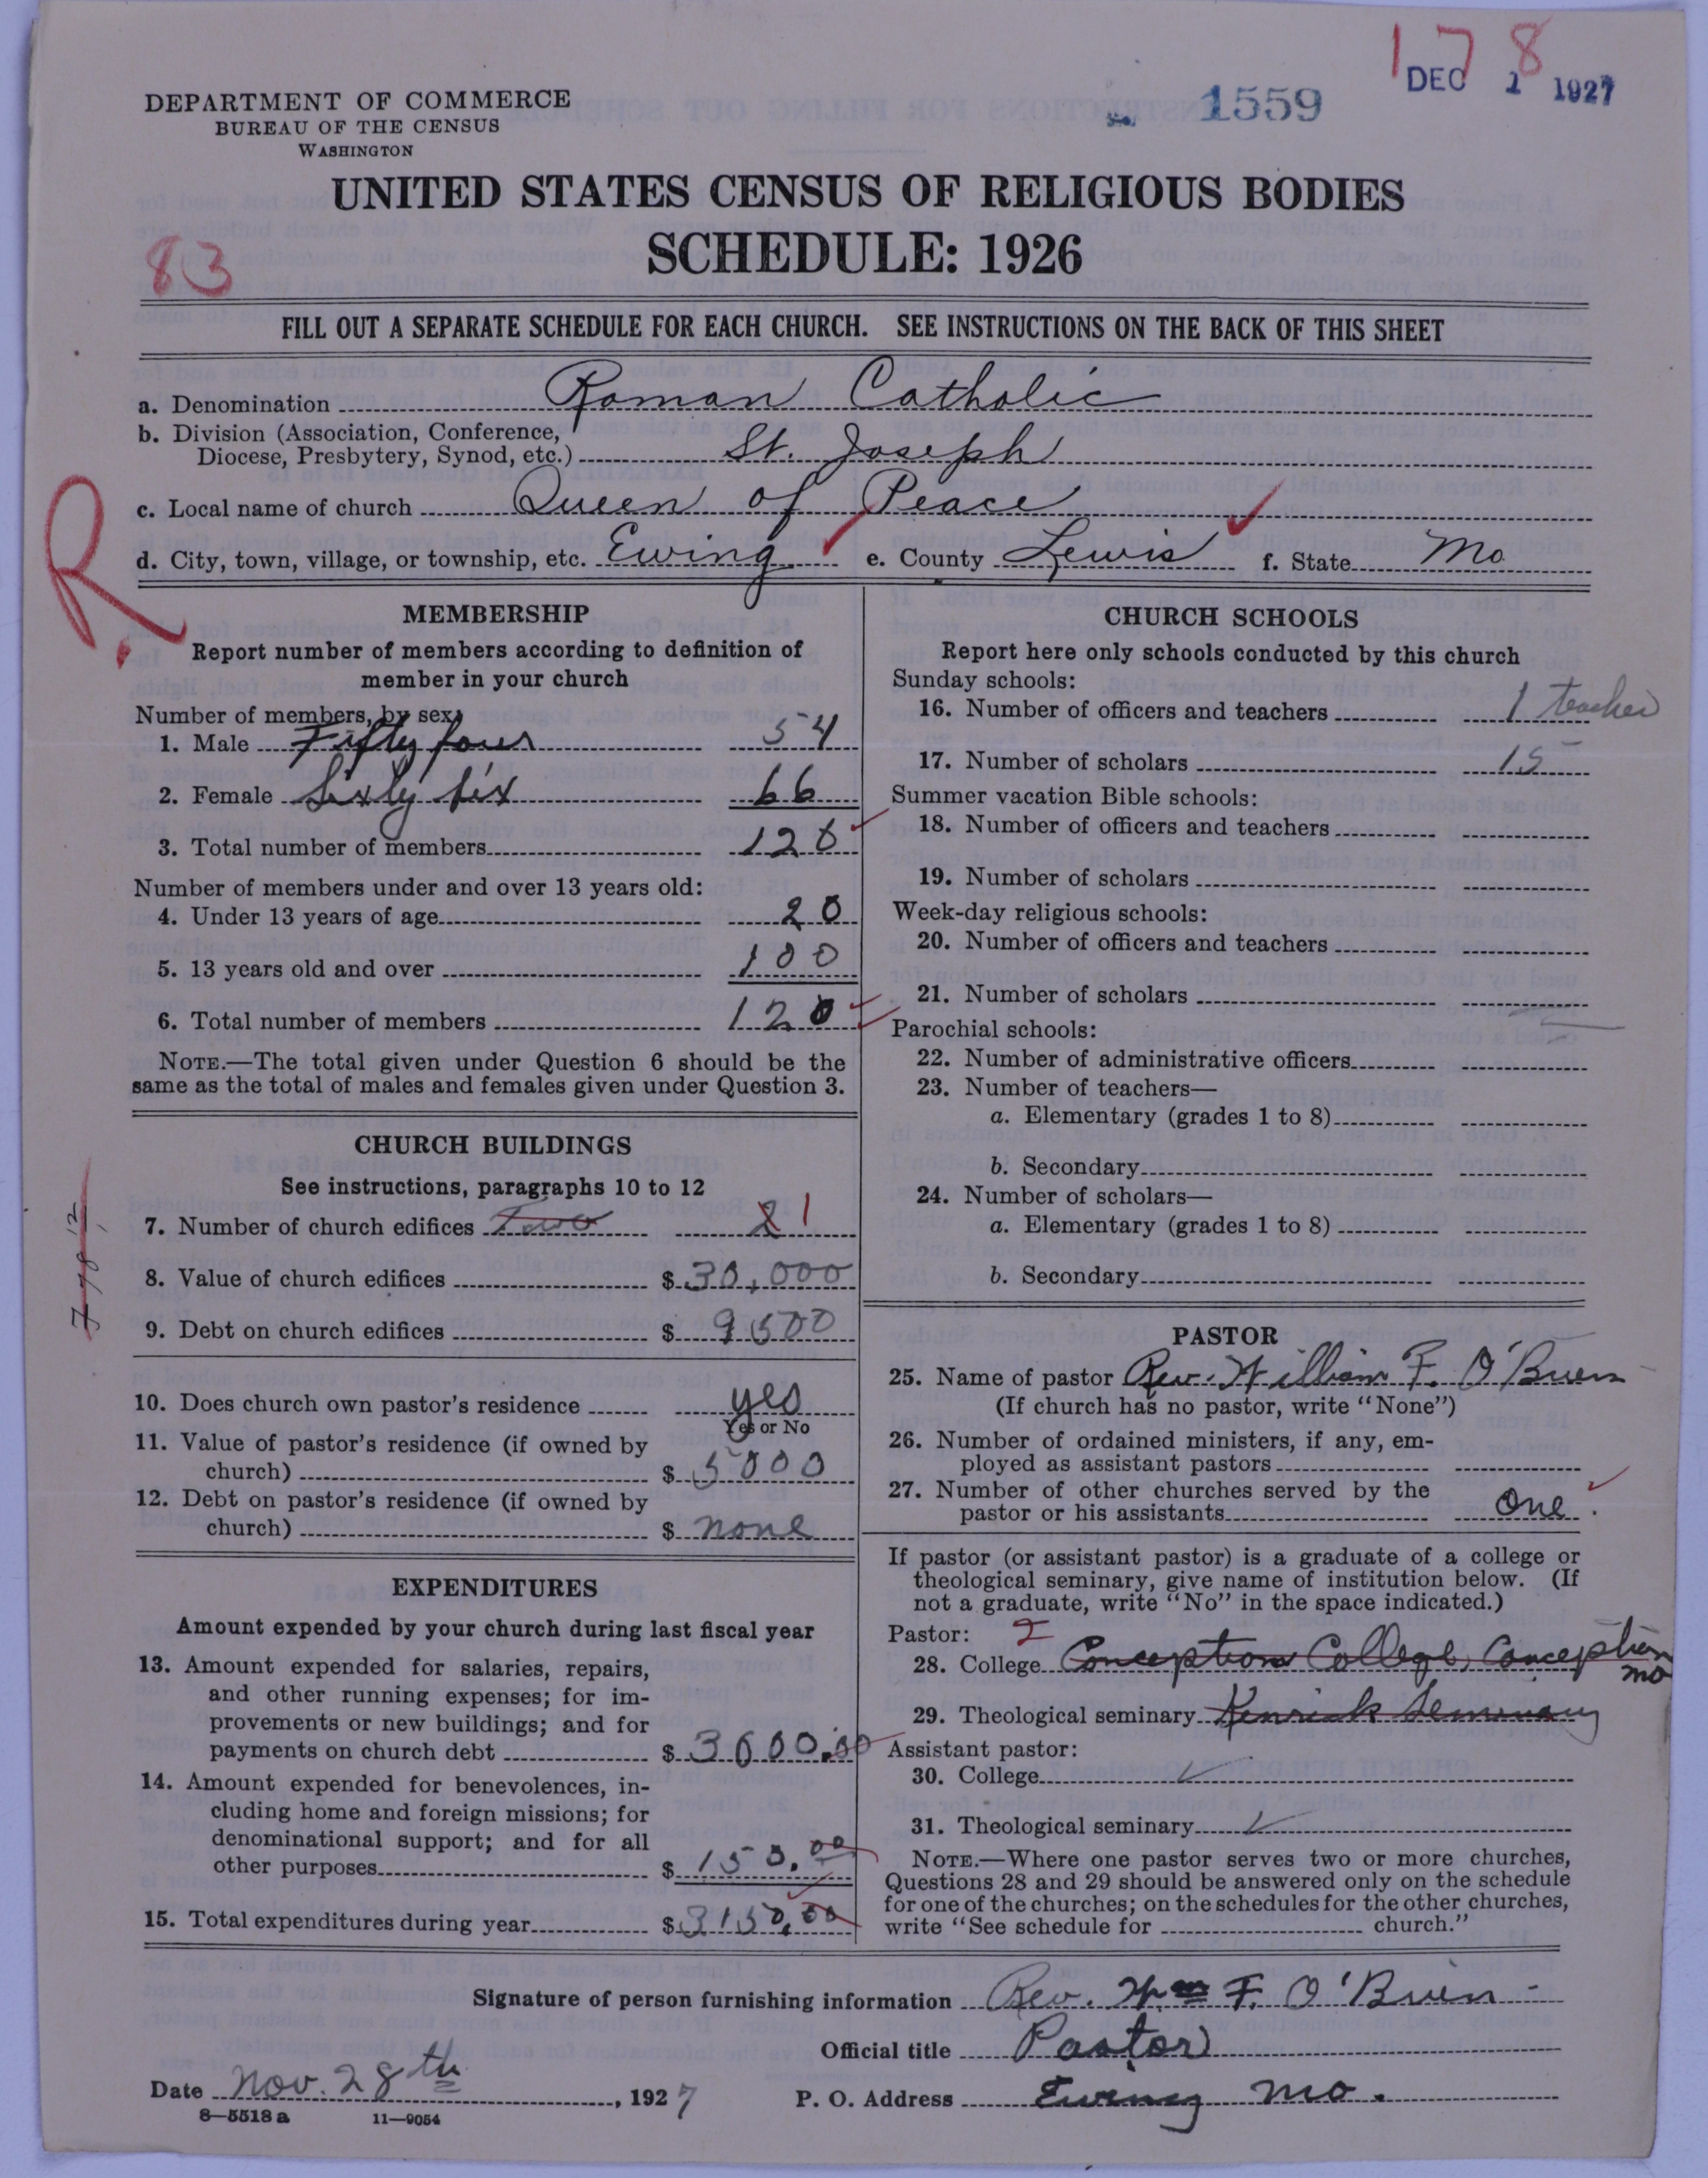 178
DEC 1 1927
1559
DEPARTMENT OF COMMERCE
BUREAU OF THE CENSUS
WASHINGTON
UNITED STATES CENSUS OF RELIGIOUS BODIES
SCHEDULE: 1926
83
FILL OUT A SEPARATE SCHEDULE FOR EACH CHURCH. SEE INSTRUCTIONS ON THE BACK OF THIS SHEET
a. Denomination Roman Catholic
b. Division (Association, Conference,
Diocese, Presbytery, Synod, etc.) St. Joseph
c. Local name of church Queen of Peace
d. City, town, village, or township, etc. Ewing e. County Lewis f. State Mo
R.
MEMBERSHIP
Report number of members according to definition of
member in your church
Number of members, by sex:
1. Male Fifty four 54
2. Female Sixty six 66
3. Total number of members 120
Number of members under and over 13 years old:
4. Under 13 years of age 20
5. 13 years old and over 100
6. Total number of members 120
NOTE.—The total given under Question 6 should be the
same as the total of males and females given under Question 3.
CHURCH BUILDINGS
See instructions, paragraphs 10 to 12
7. Number of church edifices Two 2 1
8. Value of church edifices $ 30,000
9. Debt on church edifices $ 9500
10. Does church own pastor's residence yes
Yes or No
11. Value of pastor's residence (if owned by
church) $ 5000
12. Debt on pastor's residence (if owned by
church) $ none
EXPENDITURES
Amount expended by your church during last fiscal year
13. Amount expended for salaries, repairs,
and other running expenses; for im-
provements or new buildings; and for
payments on church debt $ 3000.00
14. Amount expended for benevolences, in-
cluding home and foreign missions; for
denominational support; and for all
other purposes $ 150.00
15. Total expenditures during year $ 3150.00
CHURCH SCHOOLS
Report here only schools conducted by this church
Sunday schools:
16. Number of officers and teachers 1 teacher
17. Number of scholars 15
Summer vacation Bible schools:
18. Number of officers and teachers
19. Number of scholars
Week-day religious schools:
20. Number of officers and teachers
21. Number of scholars
Parochial schools:
22. Number of administrative officers
23. Number of teachers—
a. Elementary (grades 1 to 8)
b. Secondary
24. Number of scholars—
a. Elementary (grades 1 to 8)
b. Secondary
PASTOR
25. Name of pastor Rev. William F. O'Brien
(If church has no pastor, write "None")
26. Number of ordained ministers, if any, em-
ployed as assistant pastors
27. Number of other churches served by the
pastor or his assistants One.
If pastor (or assistant pastor) is a graduate of a college or
theological seminary, give name of institution below. (If
not a graduate, write "No" in the space indicated.)
Pastor: 2
28. College Conception College, Conception
Mo
29. Theological seminary Kenrick Seminary
Assistant pastor:
30. College
31. Theological seminary
NOTE.—Where one pastor serves two or more churches,
Questions 28 and 29 should be answered only on the schedule
for one of the churches; on the schedules for the other churches,
write "See schedule for church."
Signature of person furnishing information Rev. Wm F. O'Brien
Official title Pastor
Date Nov. 28th, 1927 P. O. Address Ewing Mo.
8—5518a 11—9054